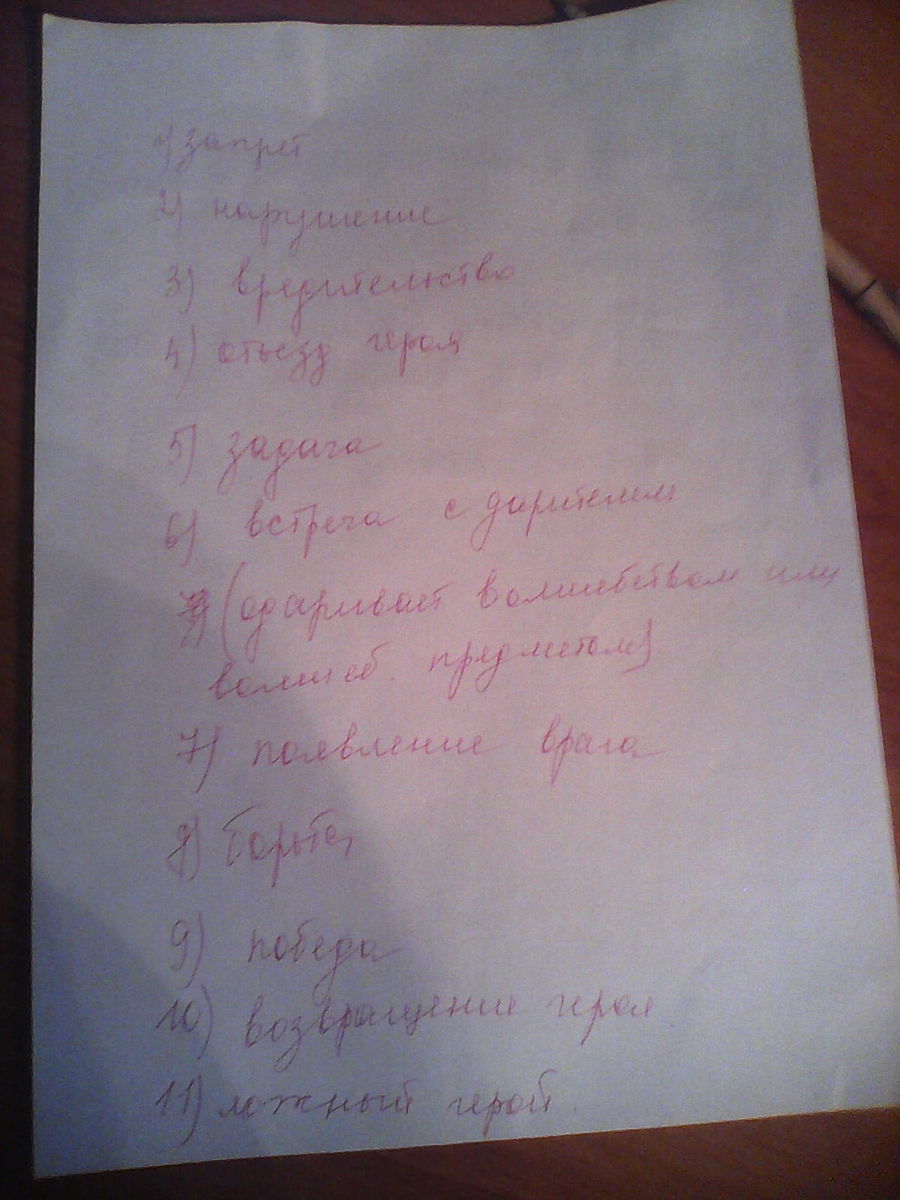 1) запрет
2) нарушение
3) вредительство
4) отъезд героя
5) задача
6) встреча с дарителем
(одаривает волшебством или
волшеб. предметом)
7) появление врага
8) борьба
9) победа
10) возвращение героя
11) ложный герой.